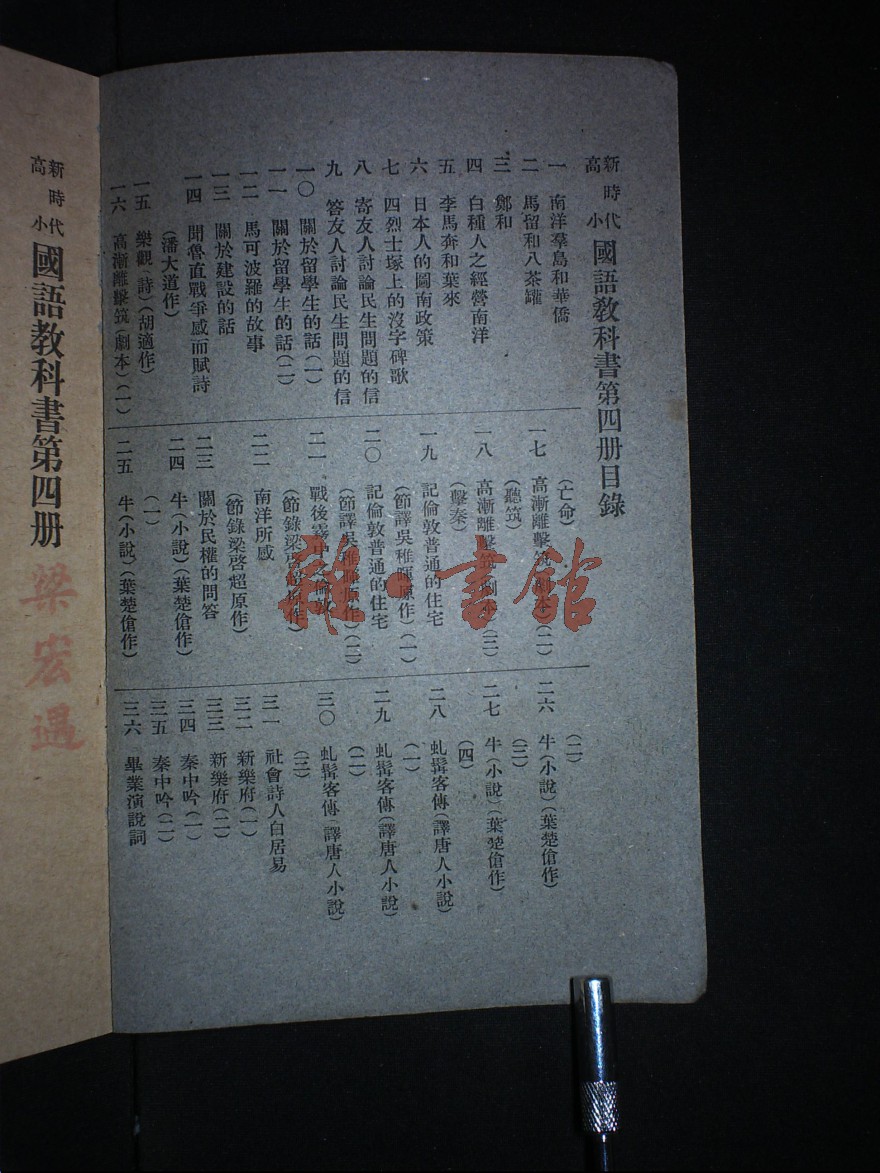 新時代高小國語教科書第四册目錄
一 南洋羣島和華僑
二 馬留和八茶罐
三 鄭和
四 白種人之經營南洋
五 李馬奔和葉來
六 日本人的圖南政策
七 四烈士塚上的沒字碑歌
八 寄友人討論民生問題的信
九 答友人討論民生問題的信
一〇 關於留學生的話(一)
一一 關於留學生的話(二)
一二 馬可波羅的故事
一三 關於建設的話
一四 聞魯直戰爭感而賦詩
(潘大道作)
一五 樂觀(詩)(胡適作)
一六 高漸離擊筑(劇本)(一)
(亡命)
一七 高漸離擊筑(劇本)(二)
(聽筑)
一八 高漸離擊筑(劇本)(三)
(擊秦)
一九 記倫敦普通的住宅
(節譯吳稚暉原作)(一)
二〇 記倫敦普通的住宅
(節譯吳稚暉原作)(二)
二一 戰後霧中之倫敦
(節錄梁啓超原作)
二二 南洋所感
(節錄梁啓超原作)
二三 關於民權的問答
二四 牛(小說)(葉楚傖作)
(一)
二五 牛(小說)(葉楚傖作)
(二)
二六 牛(小說)(葉楚傖作)
(三)
二七 牛(小說)(葉楚傖作)
(四)
二八 虬髯客傳(譯唐人小說)
(一)
二九 虬髯客傳(譯唐人小說)
(二)
三〇 虬髯客傳(譯唐人小說)
(三)
三一 社會詩人白居易
三二 新樂府(一)
三三 新樂府(二)
三四 秦中吟(一)
三五 秦中吟(二)
三六 畢業演說詞
新時代高小國語教科書第四册
梁宏遇
雜·書館